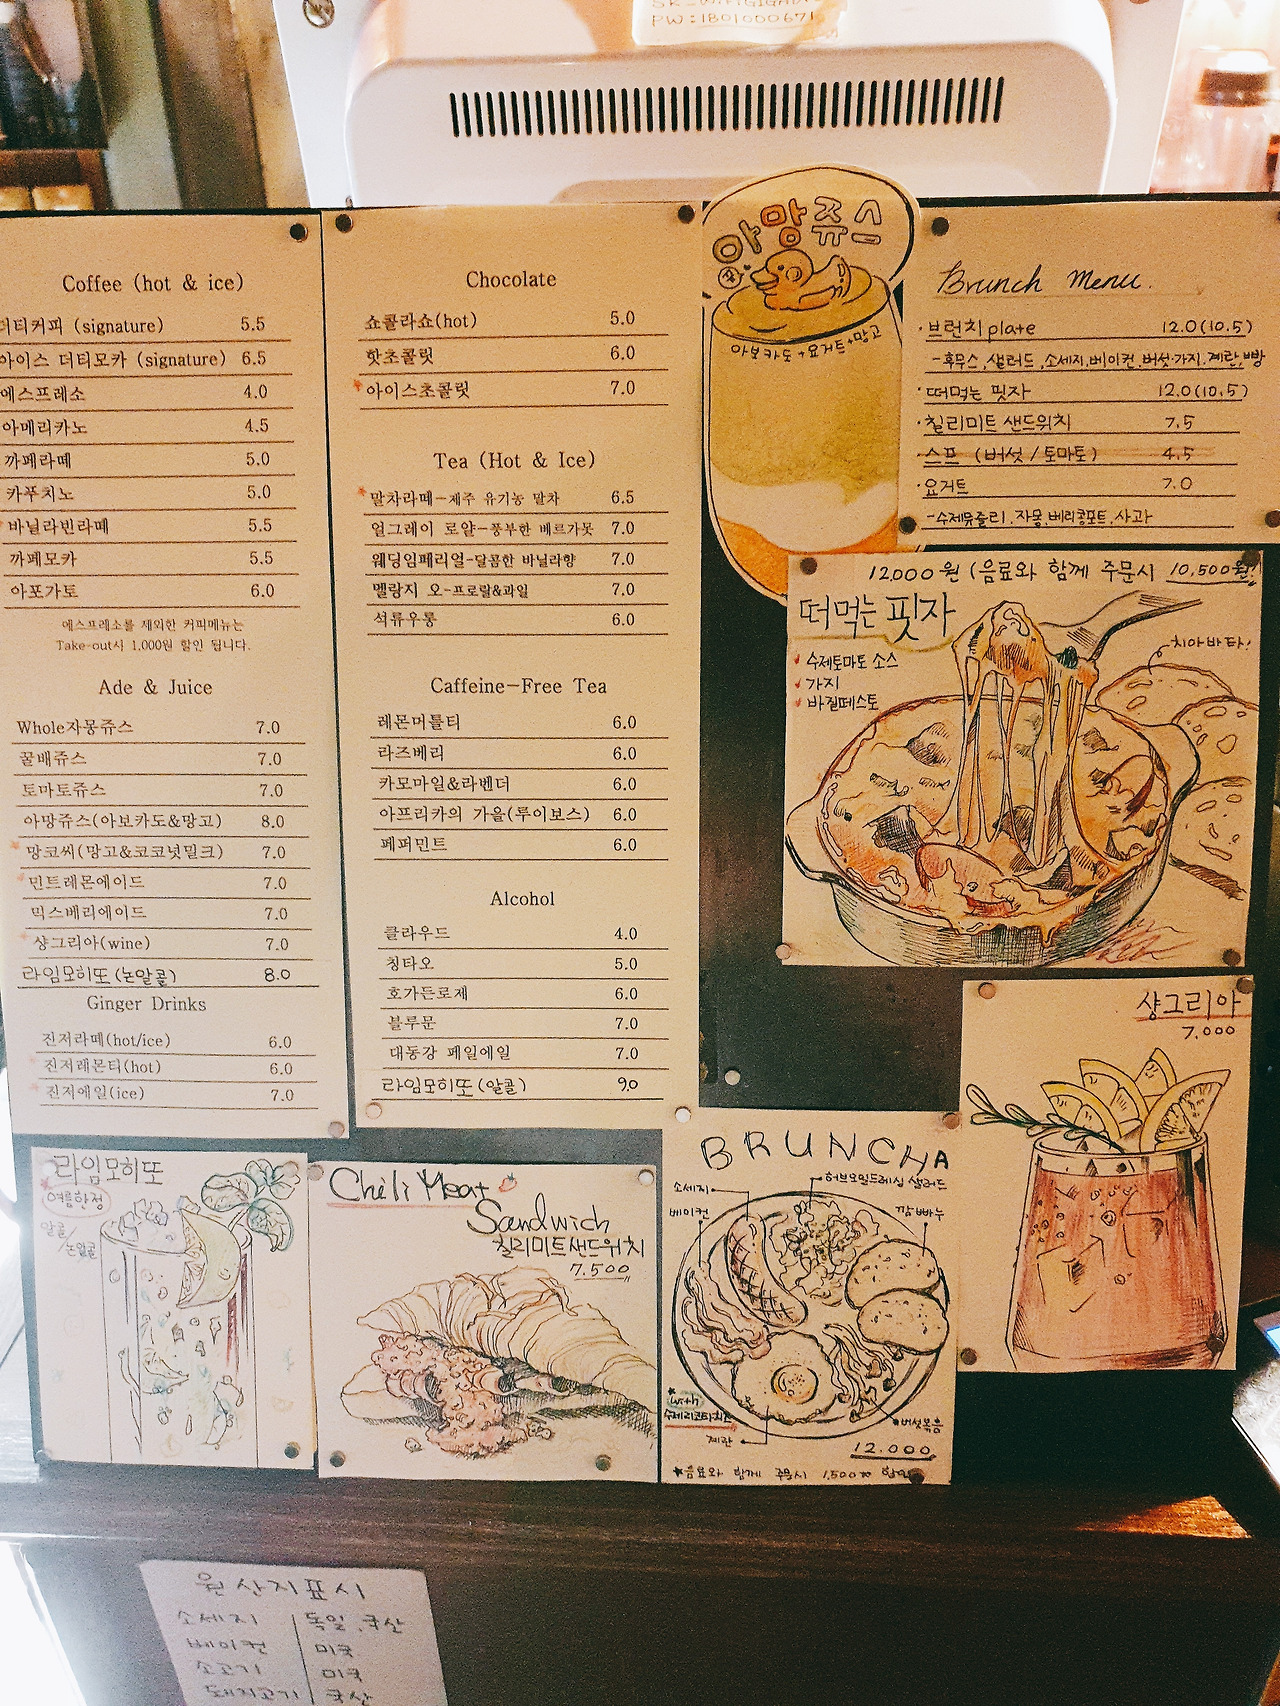 PW:1801000671
Coffee (hot & ice)
더티커피 (signature) 5.5
아이스 더티모카 (signature) 6.5
에스프레소 4.0
아메리카노 4.5
까페라떼 5.0
카푸치노 5.0
바닐라빈라떼 5.5
까페모카 5.5
아포가토 6.0
에스프레소를 제외한 커피메뉴는
Take-out시 1,000원 할인 됩니다.
Ade & Juice
Whole자몽쥬스 7.0
꿀배쥬스 7.0
토마토쥬스 7.0
아망쥬스(아보카도&망고) 8.0
망코씨(망고&코코넛밀크) 7.0
민트레몬에이드 7.0
믹스베리에이드 7.0
샹그리아(wine) 7.0
라임모히또(논알콜) 8.0
Ginger Drinks
진저라떼(hot/ice) 6.0
진저레몬티(hot) 6.0
진저에일(ice) 7.0
Chocolate
쇼콜라쇼(hot) 5.0
핫초콜릿 6.0
아이스초콜릿 7.0
Tea (Hot & Ice)
말차라떼-제주 유기농 말차 6.5
얼그레이 로얄-풍부한 베르가못 7.0
웨딩임페리얼-달콤한 바닐라향 7.0
멜랑지 오-프로랄&과일 7.0
석류우롱 6.0
Caffeine-Free Tea
레몬머틀티 6.0
라즈베리 6.0
카모마일&라벤더 6.0
아프리카의 가을(루이보스) 6.0
페퍼민트 6.0
Alcohol
클라우드 4.0
칭타오 5.0
호가든로제 6.0
블루문 7.0
대동강 페일에일 7.0
라임모히또(알콜) 9.0
아망쥬스
아보카도+요거트+망고
Brunch Menu.
·브런치 plate 12.0(10.5)
-후무스,샐러드,소세지,베이컨,버섯·가지,계란,빵
·떠먹는 핏자 12.0(10.5)
·칠리미트 샌드위치 7.5
·스프 (버섯/토마토) 4.5
·요거트 7.0
-수제뮤즐리,자몽,베리콩포트,사과
12,000원 (음료와 함께 주문시 10,500원!)
떠먹는 핏자
수제토마토 소스
가지
바질페스토
치아바타!
샹그리아
7,000
라임모히또
여름한정
알콜/
/논알콜
Chili Meat
Sandwich
칠리미트샌드위치
7.500
BRUNCHA
소세지
허브오일드레싱 샐러드
베이컨
깜빠뉴
with
수제리코타치즈
계란
버섯볶음
12.000
★음료와 함께 주문시 1,500원
원산지표시
소세지 독일,국산
베이컨 미국
소고기 미국
돼지고기 국산